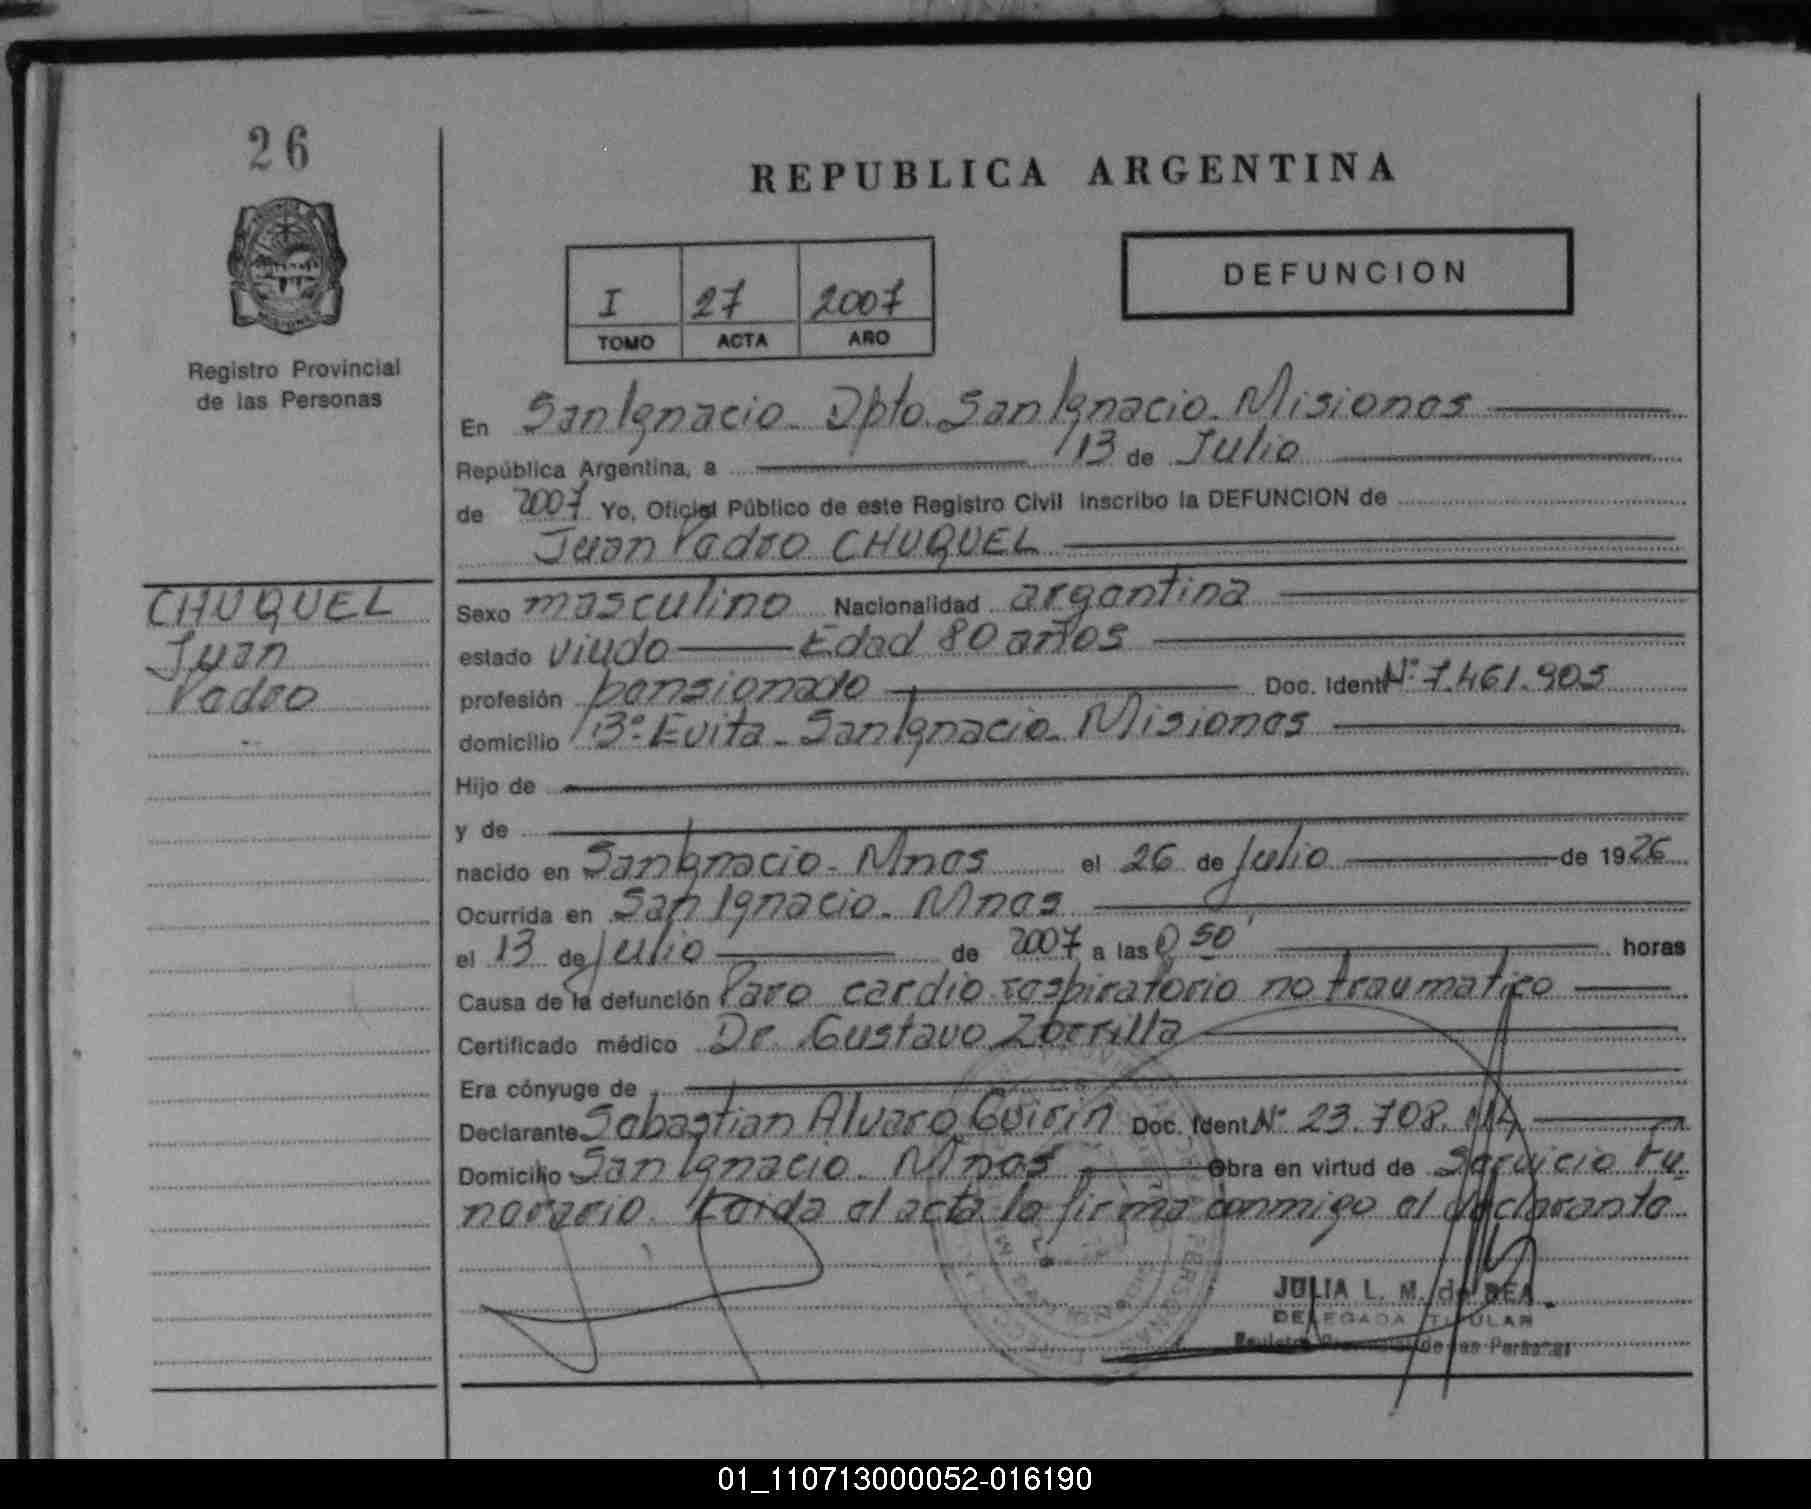 26
REPUBLICA ARGENTINA
I 27 2007
TOMO ACTA AÑO
DEFUNCION
Registro Provincial
de las Personas
En San Ignacio. Dpto. San Ignacio. Misiones
República Argentina, a 13 de Julio
de 2007 Yo, Oficial Público de este Registro Civil inscribo la DEFUNCION de
Juan Pedro CHUQUEL
CHUQUEL
Juan
Pedro
Sexo masculino Nacionalidad argentina
estado viudo Edad 80 años
profesión pensionado Doc. Ident Nº 7.461.905
domicilio Bº Evita - San Ignacio - Misiones
Hijo de
y de
nacido en San Ignacio - Mnes el 26 de Julio de 1926
Ocurrida en San Ignacio - Mnes
el 13 de Julio de 2007 a las 0,50' horas
Causa de la defunción Paro cardio respiratorio no traumatico
Certificado médico Dr. Gustavo Zorrilla
Era cónyuge de
Declarante Sebastian Alvaro Doc. Ident Nº 23.708.114
Domicilio San Ignacio - Mnes Obra en virtud de Servicio Fu-
nerario. Leida el acta la firma conmigo el declarante
JULIA L. M. de BEA
DELEGADA TITULAR
Registro Provincial de las Personas
01_110713000052-016190